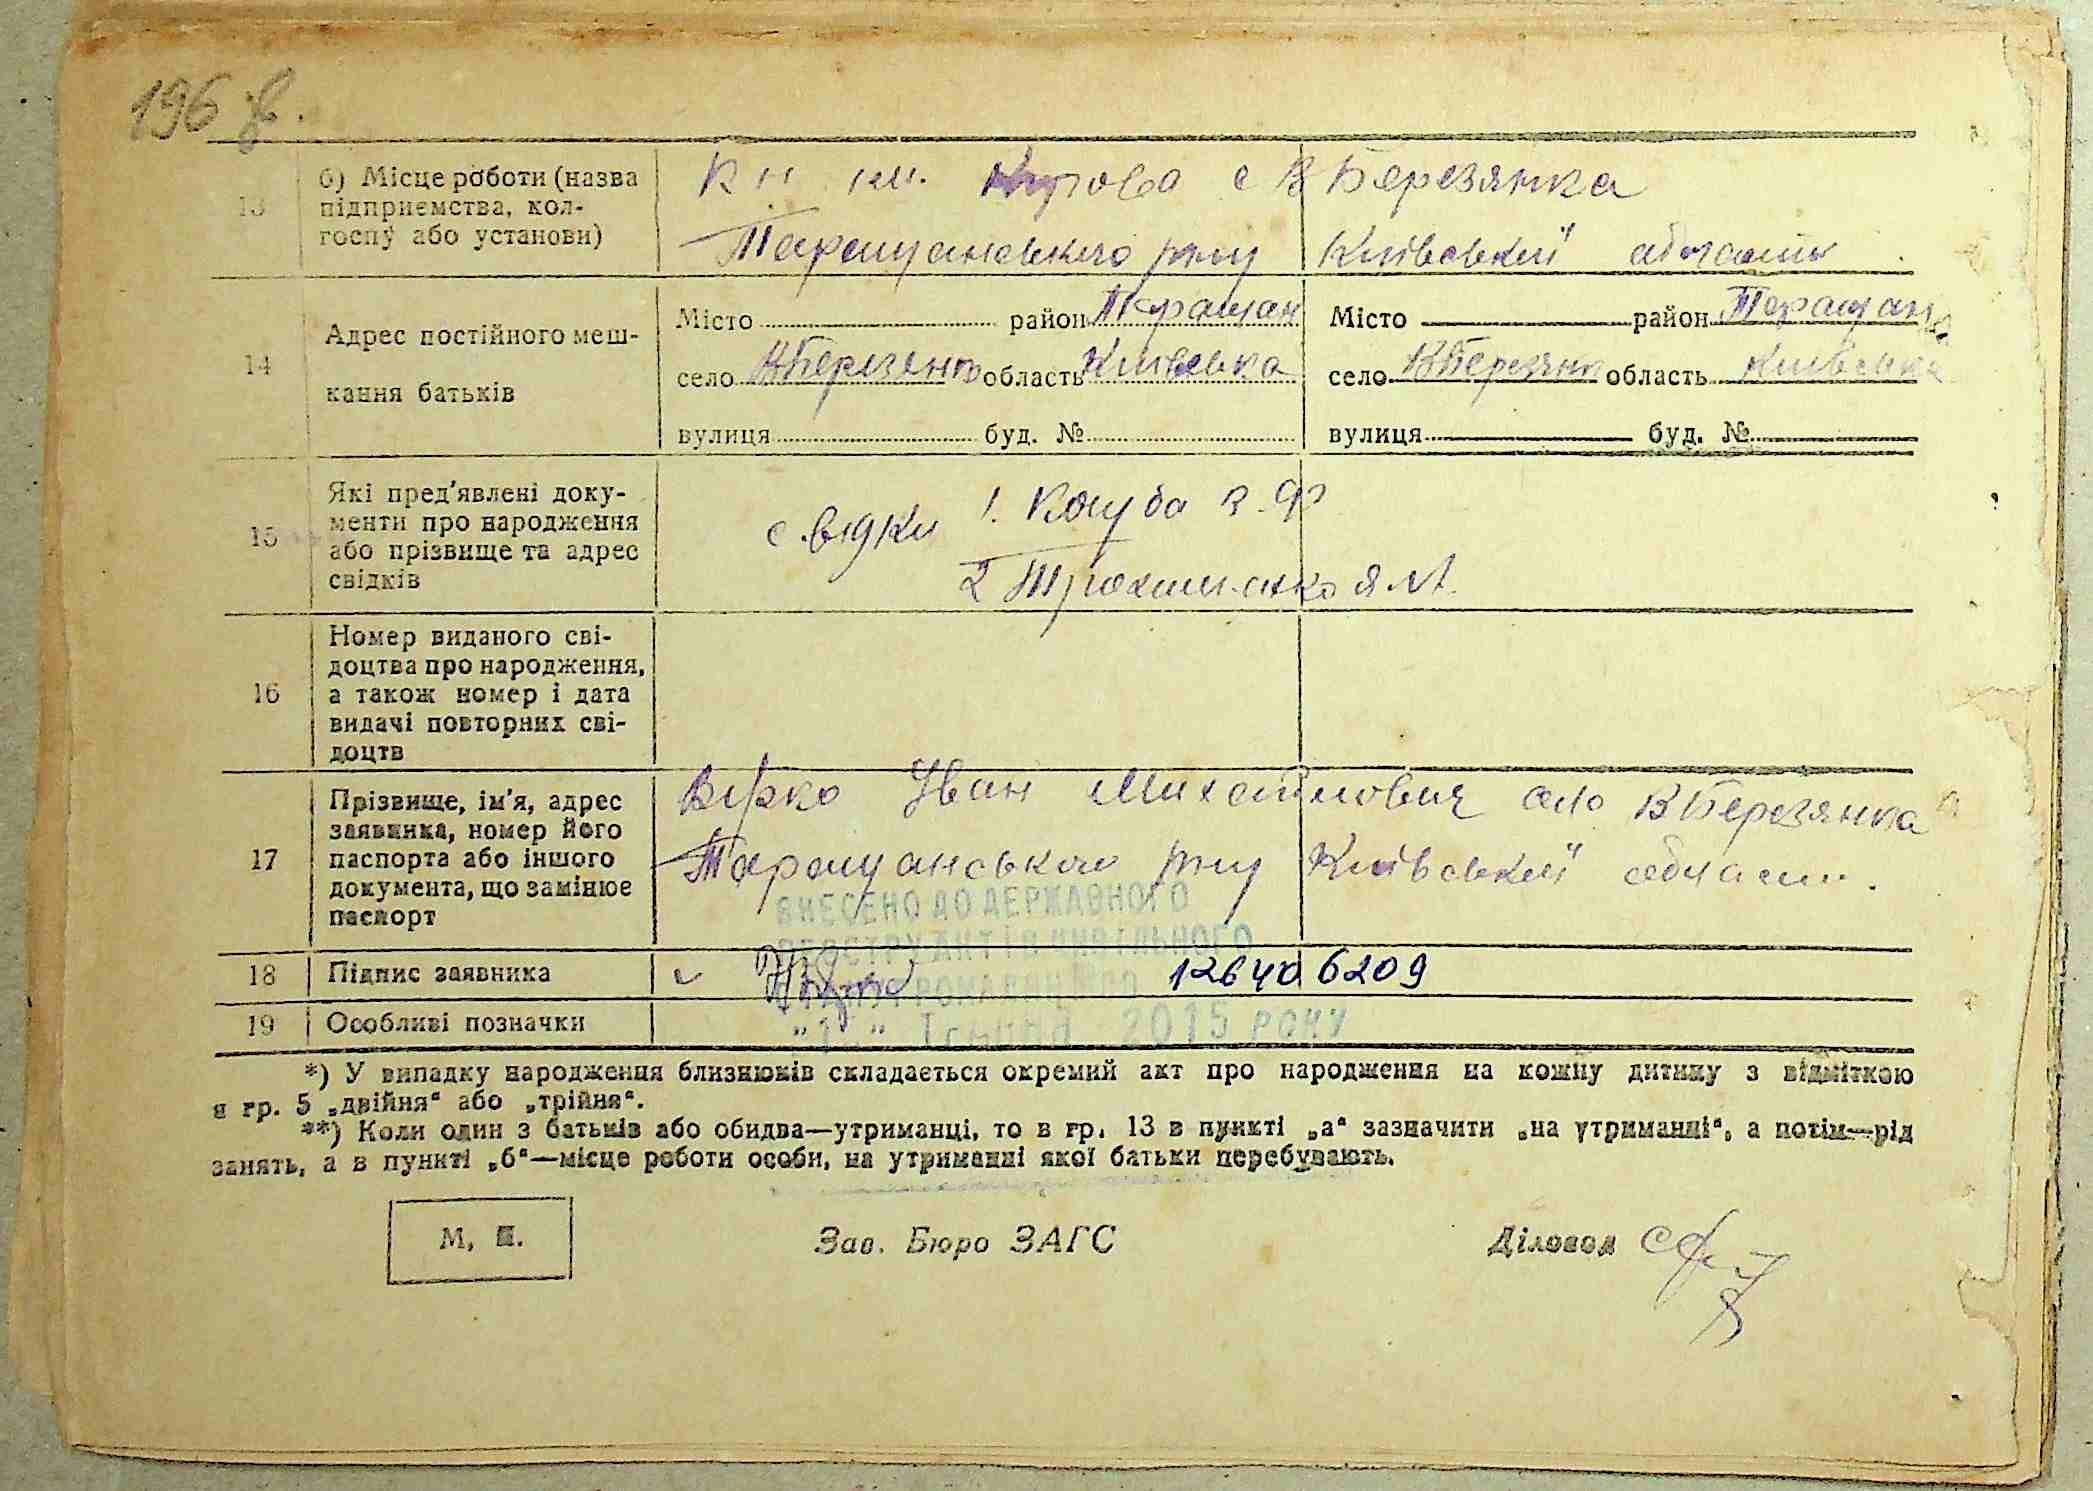 196
13 б) Місце роботи (назва підприємства, колгоспу або установи)
с В Березянка
Таращанського р-ну Київської області
14 Адрес постійного мешкання батьків
Місто район Таращан
село ВБерезянк область Київська
вулиця буд. №
Місто район Таращан
село ВБерезянк область Київська
вулиця буд. №
15 Які пред'явлені документи про народження або прізвище та адрес свідків
свідки 1. Коцуба
2
16 Номер виданого свідоцтва про народження, а також номер і дата видачі повторних свідоцтв
17 Прізвище, ім'я, адрес заявника, номер його паспорта або іншого документа, що замінює паспорт
Вірко Іван Михайлович село ВБерезянка
Таращанського р-ну Київської області.
ВНЕСЕНО ДО ДЕРЖАВНОГО
РЕЄСТРУ АКТІВ ЦИВІЛЬНОГО
СТАНУ ГРОМАДЯН ПО
2015 РОКУ
18 Підпис заявника
126406209
19 Особливі позначки
*) У випадку народження близнюків складається окремий акт про народження на кожну дитину з відміткою
в гр. 5 „двійня“ або „трійня“.
**) Коли один з батьків або обидва—утриманці, то в гр. 13 в пункті „а“ зазначити „на утриманні“, а потім—рід
занять, а в пункті „б“—місце роботи особи, на утриманні якої батьки перебувають.
М. П.
Зав. Бюро ЗАГС
Діловод